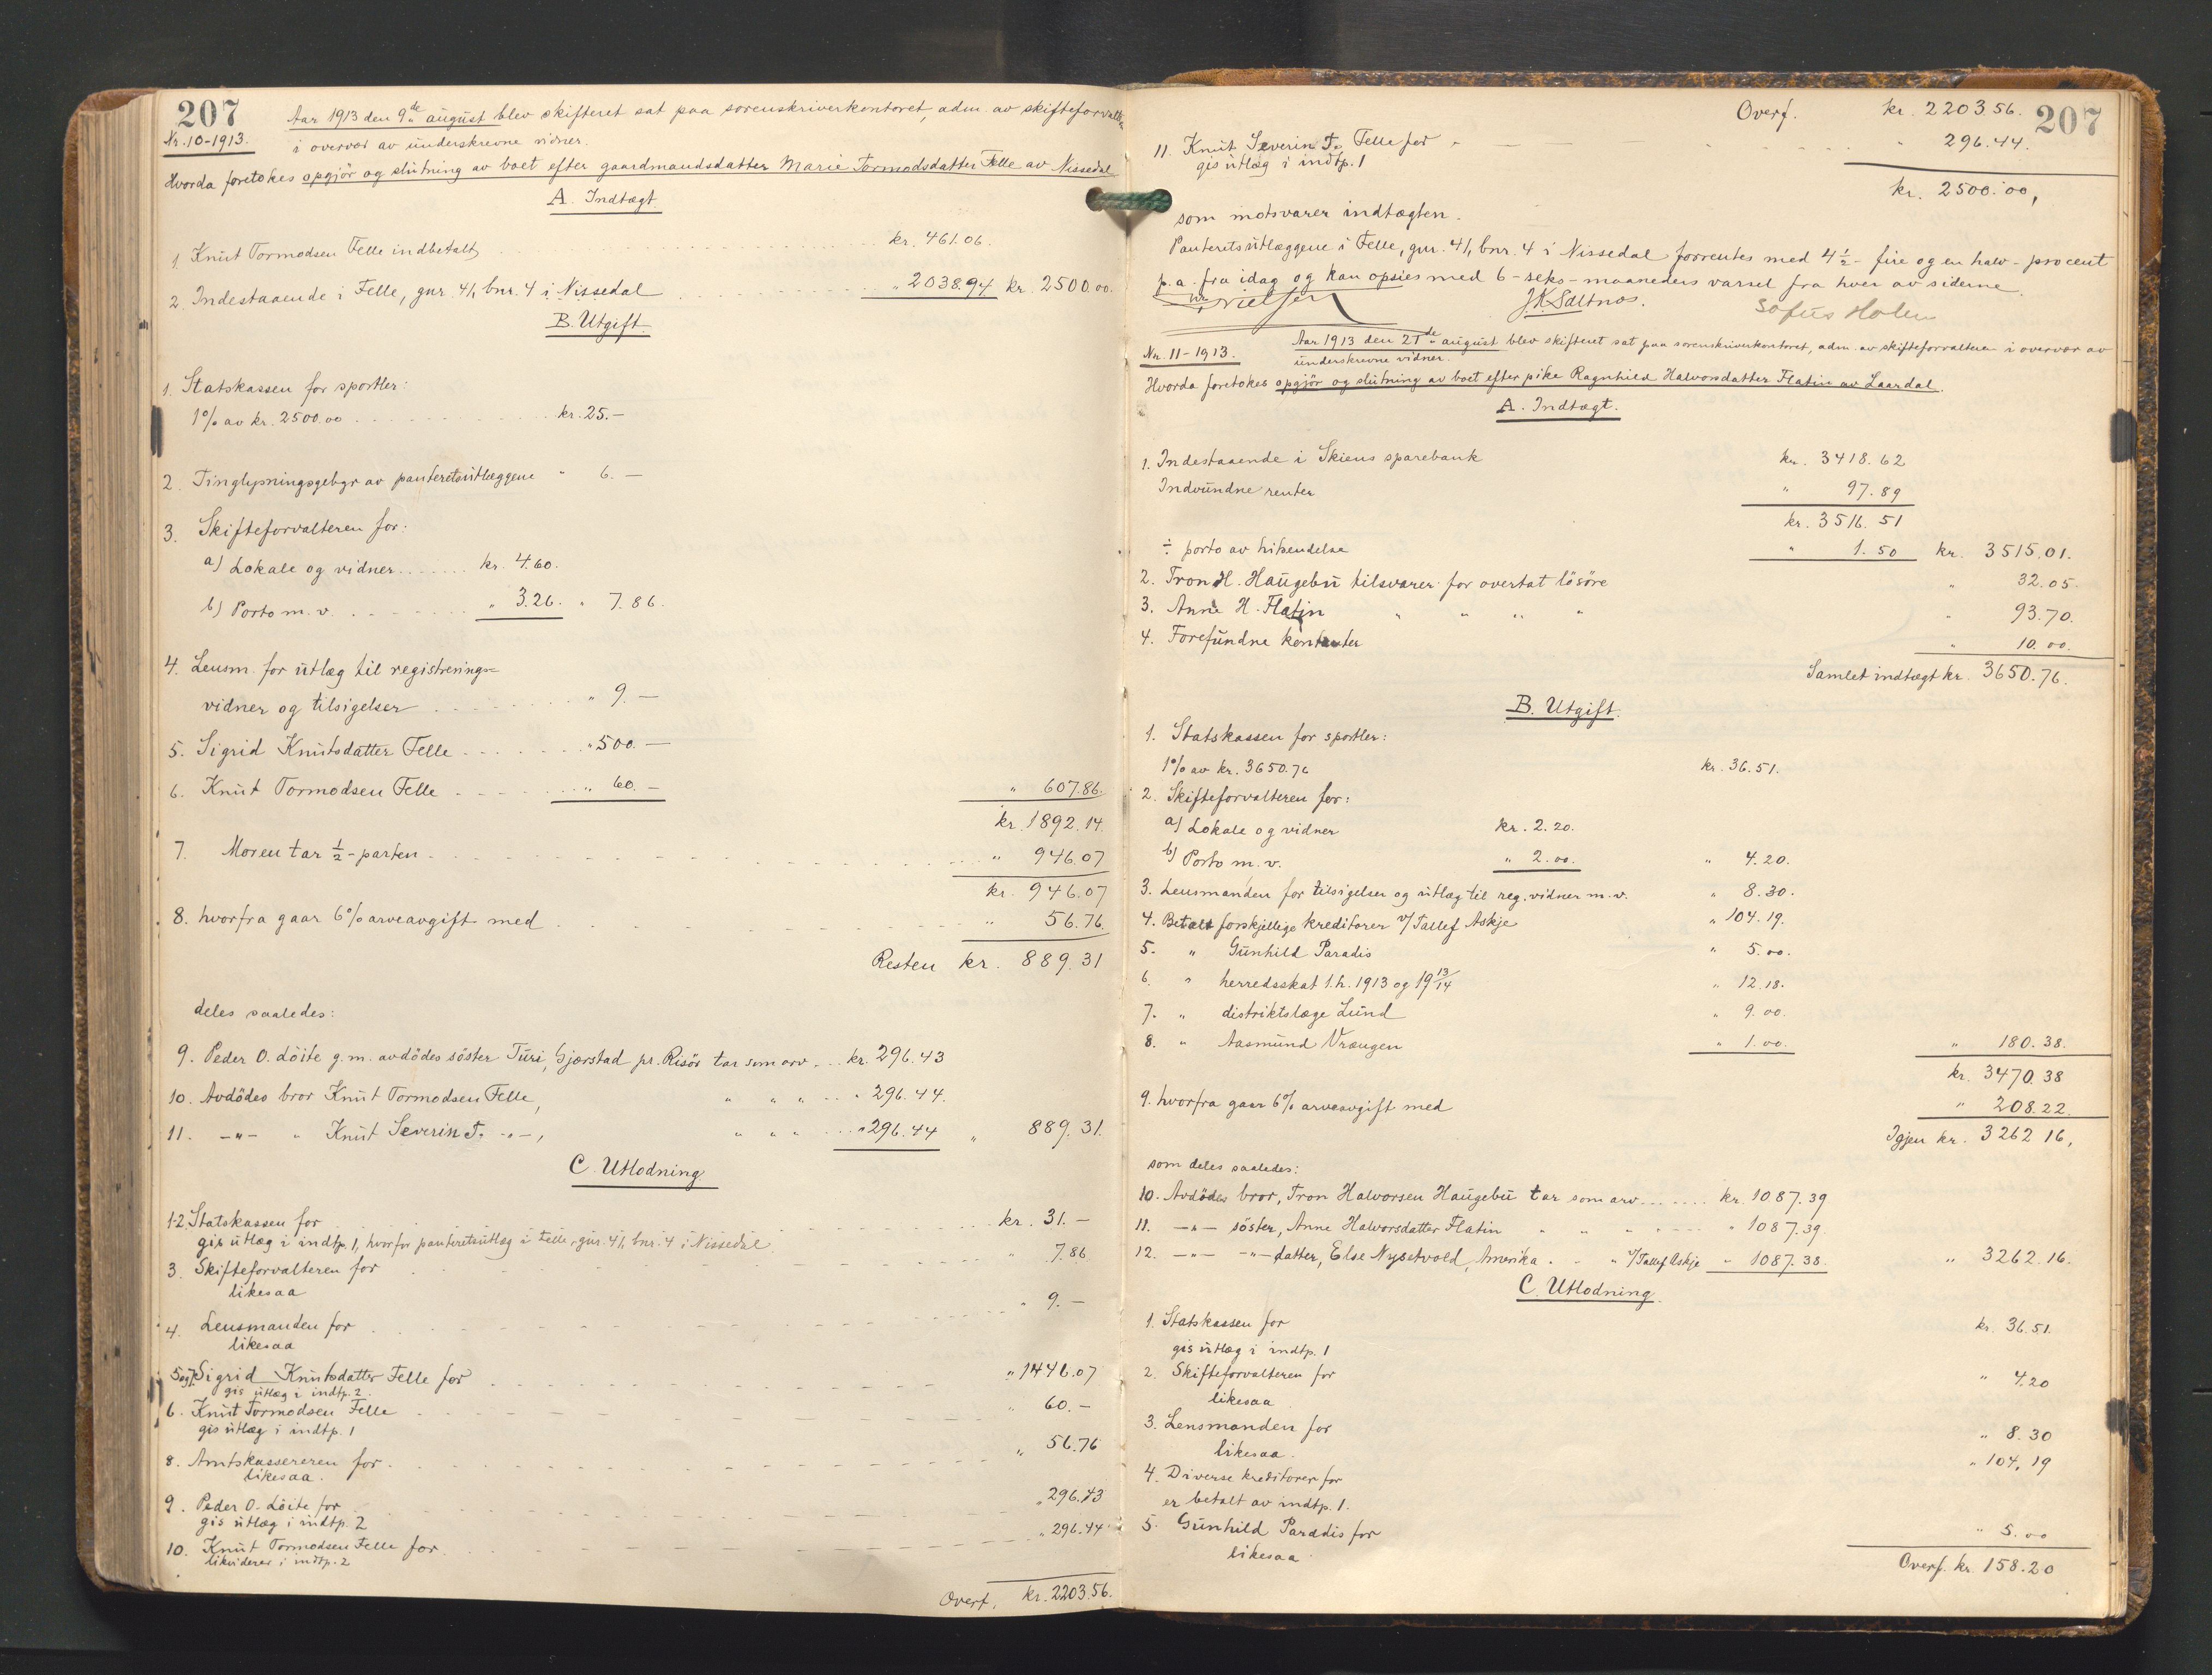 207
Nr. 10-1913.
Aar 1913 den 9de august blev skifteret sat paa sorenskriverkontoret, adm. av skifteforvalteren
i overvær av underskrevne vidner.
Hvorda foretokes opgjör og slutning av boet efter gaardmandsdatter Marie Tormodsdatter Felle av Nissedal
A. Indtægt.
1. Knut Tormodsen Felle indbetalt kr. 461.06.
2. Indestaaende i Felle, gnr. 41, bnr. 4 i Nissedal " 2038.94 kr. 2500.00.
B. Utgift.
1. Statskassen for sportler:
1% av kr. 2500.00 kr. 25.—
2. Tinglysningsgebyr av panteretsutlæggene " 6.—
3. Skifteforvalteren for:
a) Lokale og vidner kr. 4.60.
b) Porto m. v. " 3.26. " 7.86.
4. Lensm. for utlæg til registrerings=
vidner og tilsigelser " 9.—
5. Sigrid Knutsdatter Felle " 500.—
6. Knut Tormodsen Felle " 60.— " 607.86.
kr. 1892.14.
7. Moren tar ½-parten " 946.07
kr. 946.07
8. hvorfra gaar 6% arveavgift med " 56.76.
Resten kr. 889.31
deles saaledes:
9. Peder O. Löite g.m. avdödes söster Turi, Gjærstad pr. Risör tar som arv kr. 296.43
10. Avdödes bror Knut Tormodsen Felle, " " " " 296.44.
11. —"— " Knut Severin T. —"—, " " " " 296.44 " 889.31.
C. Utlodning
1-2. Statskassen for kr. 31.—
gis utlæg i indtp. 1, hvorfor panteretsutlæg i Felle, gnr. 41, bnr. 4 i Nissedal
3. Skifteforvalteren for " 7.86
likesaa
4. Lensmanden for " 9.—
likesaa
5 og 7. Sigrid Knutsdatter Felle for " 1446.07
gis utlæg i indtp. 2.
6. Knut Tormodsen Felle " 60.—
gis utlæg i indtp. 1
8. Amtskassereren for " 56.76
likesaa.
9. Peder O. Löite for " 296.43
gis utlæg i indtp. 2
10. Knut Tormodsen Felle for " 296.44
likviderer i indtp. 2
Overf. kr. 2203.56.
207
Overf. kr. 2203.56.
11. Knut Severin T. Felle for " 296.44.
gis utlæg i indtp. 1
kr. 2500.00,
som motsvarer indtægten.
Panteretsutlæggene i Felle, gnr. 41, bnr. 4 i Nissedal forrentes med 4½ - fire og en halv - procent
p. a. fra idag og kan opsies med 6 - seks - maaneders varsel fra hver av siderne.
Nielsen J.K. Saltnes. Sofus Holen
Nr. 11-1913.
Aar 1913 den 21de august blev skifteret sat paa sorenskriverkontoret, adm. av skifteforvalteren i overvær av
underskrevne vidner.
Hvorda foretokes opgjör og slutning av boet efter pike Ragnhild Halvorsdatter Flatin av Laardal.
A. Indtægt.
1. Indestaaende i Skiens sparebank kr. 3418.62
Indvundne renter " 97.89
kr. 3516.51
÷ porto av tilsendelse " 1.50 kr. 3515.01.
2. Tron H. Haugebu tilsvarer for overtat lösöre " 32.05.
3. Anne H. Flatin " " " " " 93.70.
4. Forefundne kontanter " 10.00.
Samlet indtægt kr. 3650.76.
B. Utgift.
1. Statskassen for sportler:
1% av kr. 3650.76 kr. 36.51.
2. Skifteforvalteren for:
a) Lokale og vidner kr. 2.20.
b) Porto m. v. " 2.00. " 4.20.
3. Lensmanden for tilsigelser og utlæg til reg. vidner m. v. " 8.30.
4. Betalt forskjellige kreditorer v/ Tallef Askje " 104.19.
5. " Gunhild Paradis " 5.00.
6. " herredsskat 1. h. 1913 og 1913/14 " 12.18.
7. " distriktslæge Lund " 9.00.
8. " Aasmund Vrængen " 1.00. " 180.38.
kr. 3470.38
9. hvorfra gaar 6% arveavgift med " 208.22.
Igjen kr. 3262.16,
som deles saaledes:
10. Avdödes bror, Tron Halvorsen Haugebu tar som arv kr. 1087.39
11. —"— söster, Anne Halvorsdatter Flatin " " " " 1087.39.
12. —"— —"— datter, Else Nysetvold, Amerika " " " v/ Tallef Askje " 1087.38. " 3262.16.
C. Utlodning.
1. Statskassen for kr. 36.51.
gis utlæg i indtp. 1
2. Skifteforvalteren for " 4.20
likesaa
3. Lensmanden for " 8.30
likesaa.
4. Diverse kreditorer for " 104.19
er betalt av indtp. 1.
5. Gunhild Paradis for " 5.00
likesaa
Overf. kr. 158.20